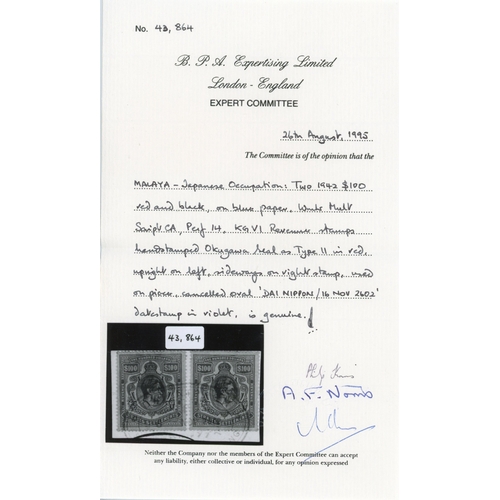 No. 43,864
B. P. A. Expertising Limited
London - England
EXPERT COMMITTEE
26th August, 1995
The Committee is of the opinion that the
MALAYA – Japanese Occupation: Two 1942 $100
red and black, on blue paper, Wmk Mult
Script CA, Perf 14, KGVI Revenue stamps
handstamped Okugawa Seal as Type II in red,
upright on left, sideways on right stamp, used
on piece, cancelled oval 'DAI NIPPON/16 NOV 2602'
datestamp in violet. is genuine.
43,864
$100 $100 $100 $100
A. F. Norris
Neither the Company nor the members of the Expert Committee can accept
any liability, either collective or individual, for any opinion expressed